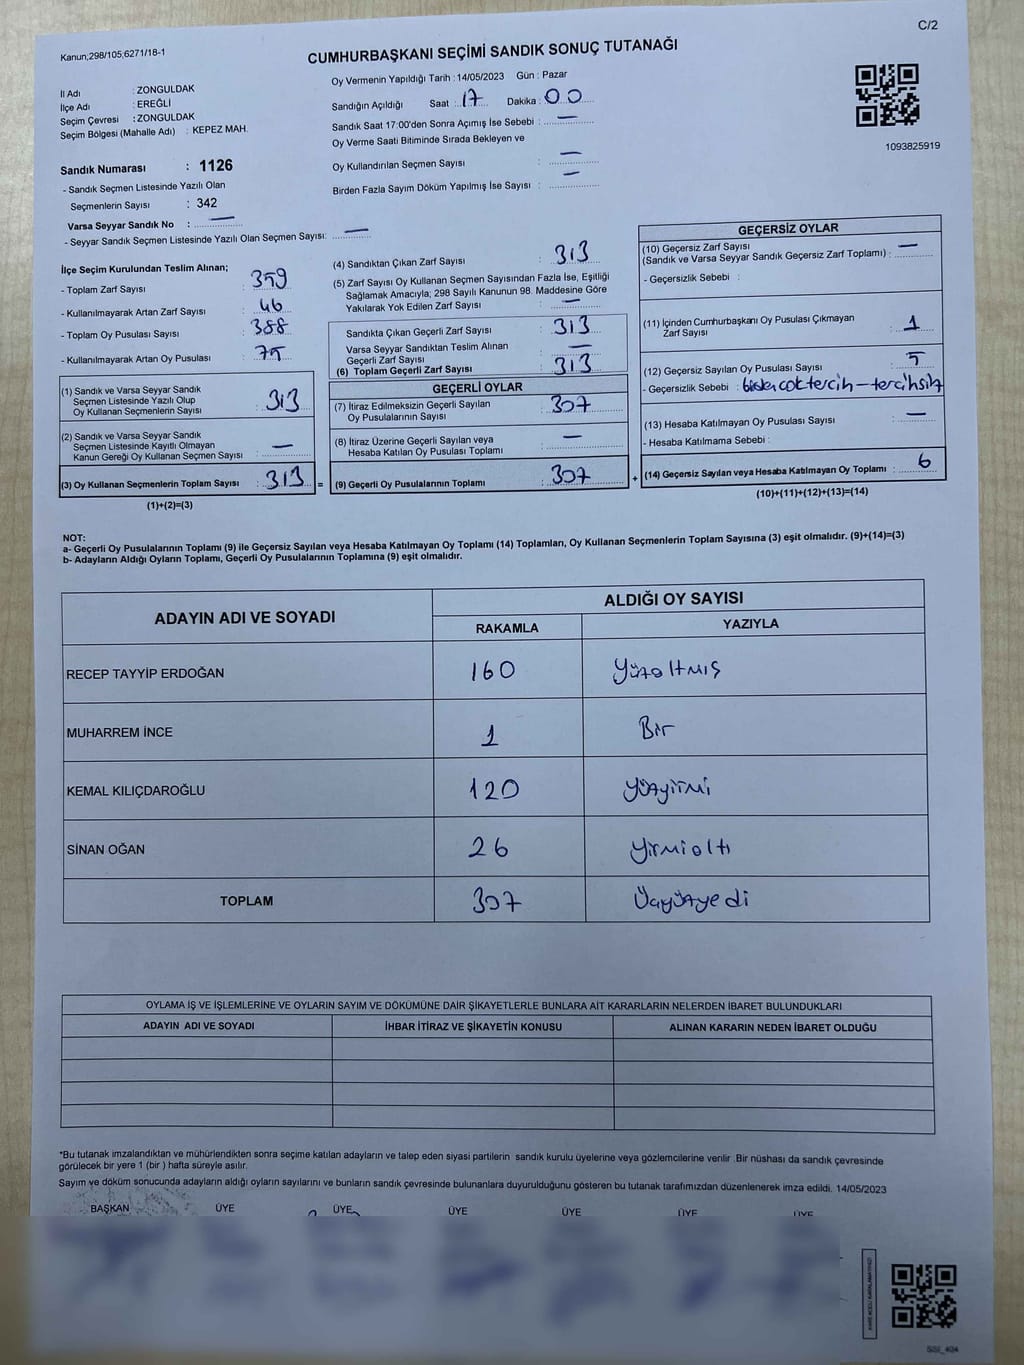 C/2
Kanun;298/105;6271/18-1
CUMHURBAŞKANI SEÇİMİ SANDIK SONUÇ TUTANAĞI
İl Adı : ZONGULDAK
İlçe Adı : EREĞLİ
Seçim Çevresi : ZONGULDAK
Seçim Bölgesi (Mahalle Adı) : KEPEZ MAH.
Oy Vermenin Yapıldığı Tarih : 14/05/2023 Gün : Pazar
Sandığın Açıldığı Saat : 17 Dakika : 00
Sandık Saat 17:00'den Sonra Açımış İse Sebebi : —
Oy Verme Saati Bitiminde Sırada Bekleyen ve
Oy Kullandırılan Seçmen Sayısı : —
Birden Fazla Sayım Döküm Yapılmış İse Sayısı : —
1093825919
Sandık Numarası : 1126
- Sandık Seçmen Listesinde Yazılı Olan
Seçmenlerin Sayısı : 342
Varsa Seyyar Sandık No : —
- Seyyar Sandık Seçmen Listesinde Yazılı Olan Seçmen Sayısı: —
İlçe Seçim Kurulundan Teslim Alınan;
- Toplam Zarf Sayısı : 359
- Kullanılmayarak Artan Zarf Sayısı : 46
- Toplam Oy Pusulası Sayısı : 388
- Kullanılmayarak Artan Oy Pusulası : 75
(1) Sandık ve Varsa Seyyar Sandık
Seçmen Listesinde Yazılı Olup
Oy Kullanan Seçmenlerin Sayısı : 313
(2) Sandık ve Varsa Seyyar Sandık
Seçmen Listesinde Kayıtlı Olmayan
Kanun Gereği Oy Kullanan Seçmen Sayısı : —
(3) Oy Kullanan Seçmenlerin Toplam Sayısı : 313 =
(1)+(2)=(3)
(4) Sandıktan Çıkan Zarf Sayısı : 313
(5) Zarf Sayısı Oy Kullanan Seçmen Sayısından Fazla İse, Eşitliği
Sağlamak Amacıyla; 298 Sayılı Kanunun 98. Maddesine Göre
Yakılarak Yok Edilen Zarf Sayısı : —
Sandıkta Çıkan Geçerli Zarf Sayısı : 313
Varsa Seyyar Sandıktan Teslim Alınan
Geçerli Zarf Sayısı : —
(6) Toplam Geçerli Zarf Sayısı : 313
GEÇERLİ OYLAR
(7) İtiraz Edilmeksizin Geçerli Sayılan
Oy Pusulalarının Sayısı : 307
(8) İtiraz Üzerine Geçerli Sayılan veya
Hesaba Katılan Oy Pusulası Toplamı : —
(9) Geçerli Oy Pusulalarının Toplamı : 307 +
GEÇERSİZ OYLAR
(10) Geçersiz Zarf Sayısı
(Sandık ve Varsa Seyyar Sandık Geçersiz Zarf Toplamı) : —
- Geçersizlik Sebebi :
(11) İçinden Cumhurbaşkanı Oy Pusulası Çıkmayan
Zarf Sayısı : 1
(12) Geçersiz Sayılan Oy Pusulası Sayısı : 5
- Geçersizlik Sebebi : birden çok tercih - tercihsiz
(13) Hesaba Katılmayan Oy Pusulası Sayısı : —
- Hesaba Katılmama Sebebi :
(14) Geçersiz Sayılan veya Hesaba Katılmayan Oy Toplamı : 6
(10)+(11)+(12)+(13)=(14)
NOT:
a- Geçerli Oy Pusulalarının Toplamı (9) ile Geçersiz Sayılan veya Hesaba Katılmayan Oy Toplamı (14) Toplamları, Oy Kullanan Seçmenlerin Toplam Sayısına (3) eşit olmalıdır. (9)+(14)=(3)
b- Adayların Aldığı Oyların Toplamı, Geçerli Oy Pusulalarının Toplamına (9) eşit olmalıdır.
ADAYIN ADI VE SOYADI
ALDIĞI OY SAYISI
RAKAMLA YAZIYLA
RECEP TAYYİP ERDOĞAN 160 Yüzaltmış
MUHARREM İNCE 1 Bir
KEMAL KILIÇDAROĞLU 120 yüzyirmi
SİNAN OĞAN 26 yirmialtı
TOPLAM 307 Üçyüzyedi
OYLAMA İŞ VE İŞLEMLERİNE VE OYLARIN SAYIM VE DÖKÜMÜNE DAİR ŞİKAYETLERLE BUNLARA AİT KARARLARIN NELERDEN İBARET BULUNDUKLARI
ADAYIN ADI VE SOYADI İHBAR İTİRAZ VE ŞİKAYETİN KONUSU ALINAN KARARIN NEDEN İBARET OLDUĞU
*Bu tutanak imzalandıktan ve mühürlendikten sonra seçime katılan adayların ve talep eden siyasi partilerin sandık kurulu üyelerine veya gözlemcilerine verilir .Bir nüshası da sandık çevresinde
görülecek bir yere 1 (bir ) hafta süreyle asılır.
Sayım ve döküm sonucunda adayların aldığı oyların sayılarını ve bunların sandık çevresinde bulunanlara duyurulduğunu gösteren bu tutanak tarafımızdan düzenlenerek imza edildi. 14/05/2023
BAŞKAN ÜYE ÜYE ÜYE ÜYE ÜYE ÜYE
KARE KODU KARALAMAYINIZ!
SSI_404